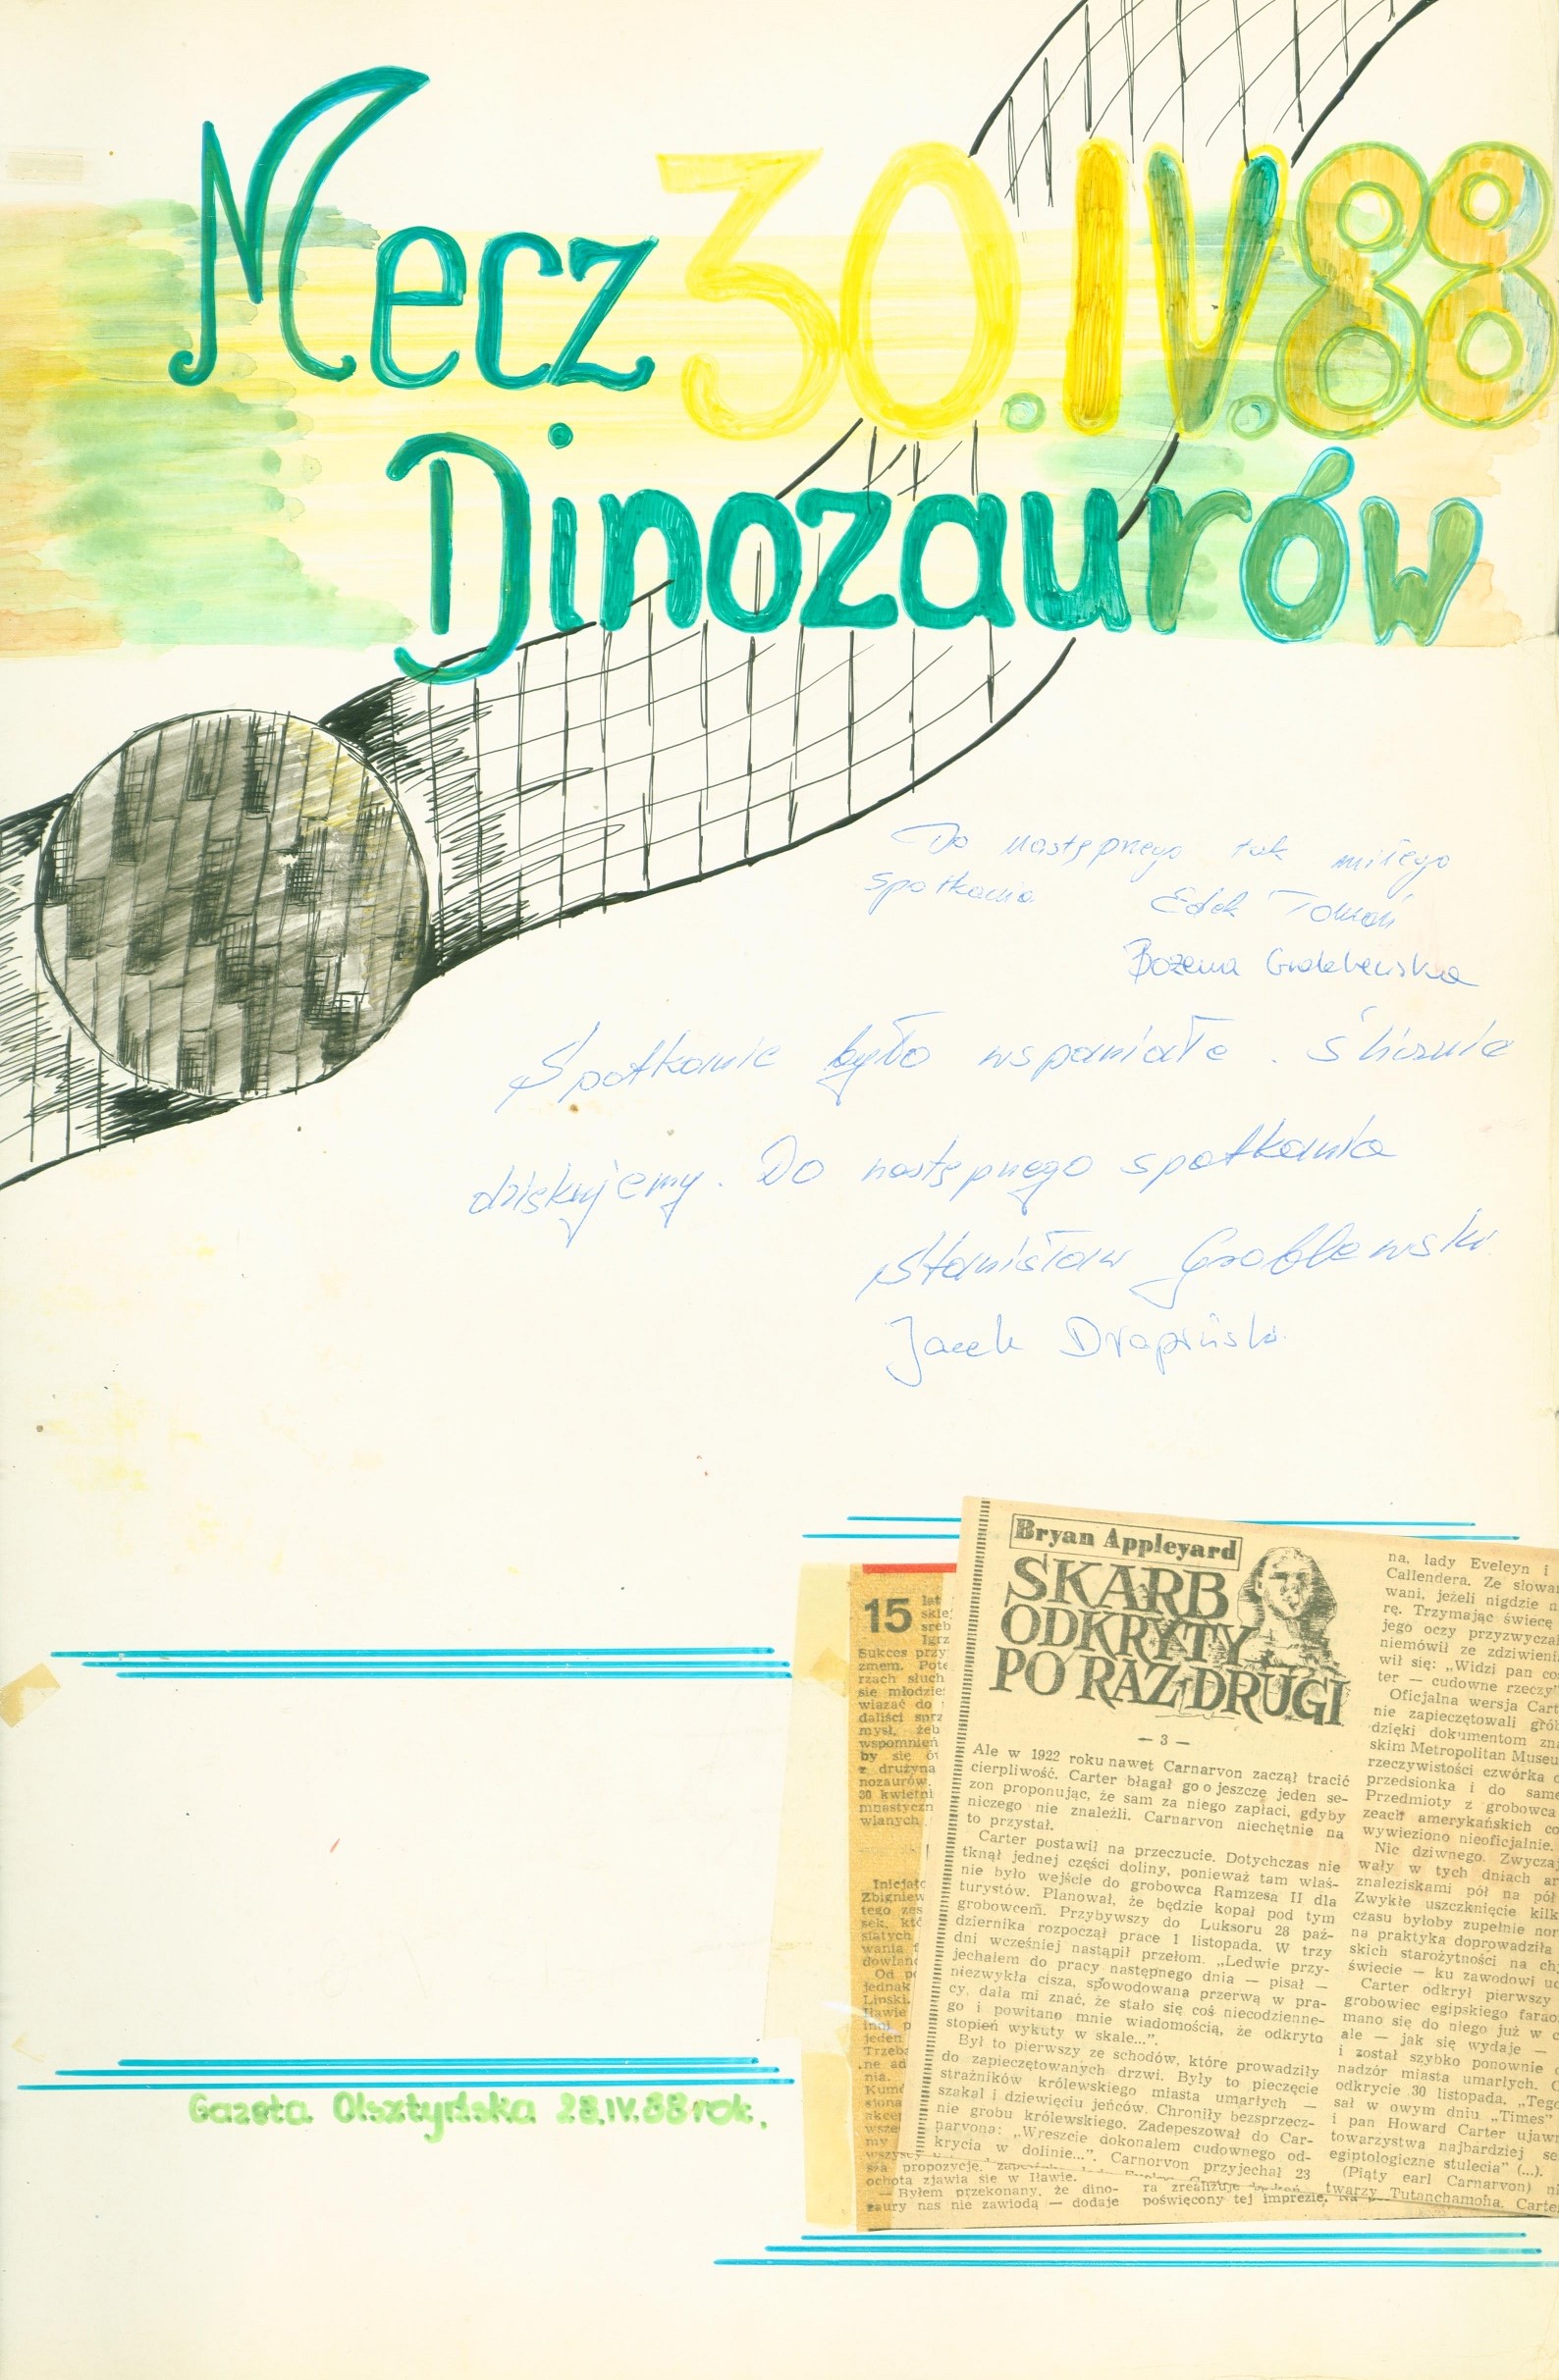 Mecz 30.IV.88
Dinozaurów
Do następnego tak miłego
spotkania Edek Tomań
Bożena
Spotkanie było wspaniałe. Ślicznie
dziękujemy. Do następnego spotkania
Stanisław Groblewski
Jacek Drapiński
Gazeta Olsztyńska 28.IV.88 rok.
15 lat
skie
sreb
Igrz
Sukces przy
zmem. Pote
rzach słuch
się młodzie
wiązać do
daliści sprz
mysł, żeb
wspomnień
by się
z drużyną
nozaurów.
30 kwietni
mnastyczn
wianych
Inicjato
Zbigniew
tego zes
sek, któ
siątych
wania
dowlane
Od po
jednak
Linski.
Iławie
inni p
jeden
Trzeba
ne ad
nia.
Kumo
sjona
akcep
wsze
my
wszyscy
sza propozycję.
ochotą zjawią się w Iławie.
— Byłem przekonany, że dino-
zaury nas nie zawiodą — dodaje
ra zrealizuje
poświęcony tej imprezie. Na
Bryan Appleyard
SKARB
ODKRYTY
PO RAZ DRUGI
— 3 —
Ale w 1922 roku nawet Carnarvon zaczął tracić
cierpliwość. Carter błagał go o jeszcze jeden se-
zon proponując, że sam za niego zapłaci, gdyby
niczego nie znaleźli. Carnarvon niechętnie na
to przystał.
Carter postawił na przeczucie. Dotychczas nie
tknął jednej części doliny, ponieważ tam właś-
nie było wejście do grobowca Ramzesa II dla
turystów. Planował, że będzie kopał pod tym
grobowcem. Przybywszy do Luksoru 28 paź-
dziernika rozpoczął prace 1 listopada. W trzy
dni wcześniej nastąpił przełom. „Ledwie przy-
jechałem do pracy następnego dnia — pisał —
niezwykła cisza, spowodowana przerwą w pra-
cy, dała mi znać, że stało się coś niecodzienne-
go i powitano mnie wiadomością, że odkryto
stopień wykuty w skale...”.
Był to pierwszy ze schodów, które prowadziły
do zapieczętowanych drzwi. Były to pieczęcie
strażników królewskiego miasta umarłych —
szakal i dziewięciu jeńców. Chroniły bezsprzecz-
nie grobu królewskiego. Zadepeszował do Car-
narvona: „Wreszcie dokonałem cudownego od-
krycia w dolinie...”. Carnorvon przyjechał 23
na, lady Eveleyn i
Callendera. Ze słowa
wani, jeżeli nigdzie n
rę. Trzymając świecę
jego oczy przyzwycza
niemówił ze zdziwieni
wił się: „Widzi pan co
ter — cudowne rzeczy”
Oficjalna wersja Cart
nie zapieczętowali grób
dzięki dokumentom zna
skim Metropolitan Museu
rzeczywistości czwórka o
przedsionka i do same
Przedmioty z grobowca
zeach amerykańskich co
wywieziono nieoficjalnie.
Nic dziwnego. Zwyczaj
wały w tych dniach ar
znaleziskami pół na pół
Zwykłe uszczknięcie kilk
czasu byłoby zupełnie nor
na praktyka doprowadziła
skich starożytności na ch
świecie — ku zawodowi uc
Carter odkrył pierwszy
grobowiec egipskiego farao
mano się do niego już w c
ale — jak się wydaje —
i został szybko ponownie
nadzór miasta umarłych. C
odkrycie 30 listopada. „Tego
sał w owym dniu „Times”
i pan Howard Carter ujawn
towarzystwa najbardziej se
egiptologiczne stulecia” (...).
(Piąty earl Carnarvon) ni
twarzy Tutanchamona. Carte